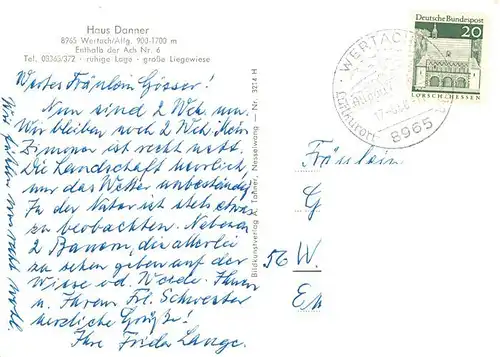 Haus Danner
8965 Wertach/Allg. 900-1700 m
Enthalb der Ach Nr. 6
Tel. 08365/372 - ruhige Lage - große Liegewiese
Wertes Fräulein Gösser!
Nun sind 2 Wch. um.
Wir bleiben noch 2 Wch. Ihr
Zimona ist recht nett.
Die Landschaft herrlich,
nur das Wetter unbeständig
In der Natur ist stets etwas
zu beobachten. Nebenan
2 Bauern, die allerlei
zu sehen geben auf der
Wiese od. Weide. Ihnen
u. Ihrem Frl. Schwester
herzliche Grüße!
Ihre Frida Lange.
Wir fühlen uns recht wohl.
Bildkunstverlag A. Tanner, Nesselwang - Nr. 3214 H
Deutsche Bundespost
20
LORSCH/HESSEN
WERTACH
Luftkurort
8965
Fräulein
G
56 W.